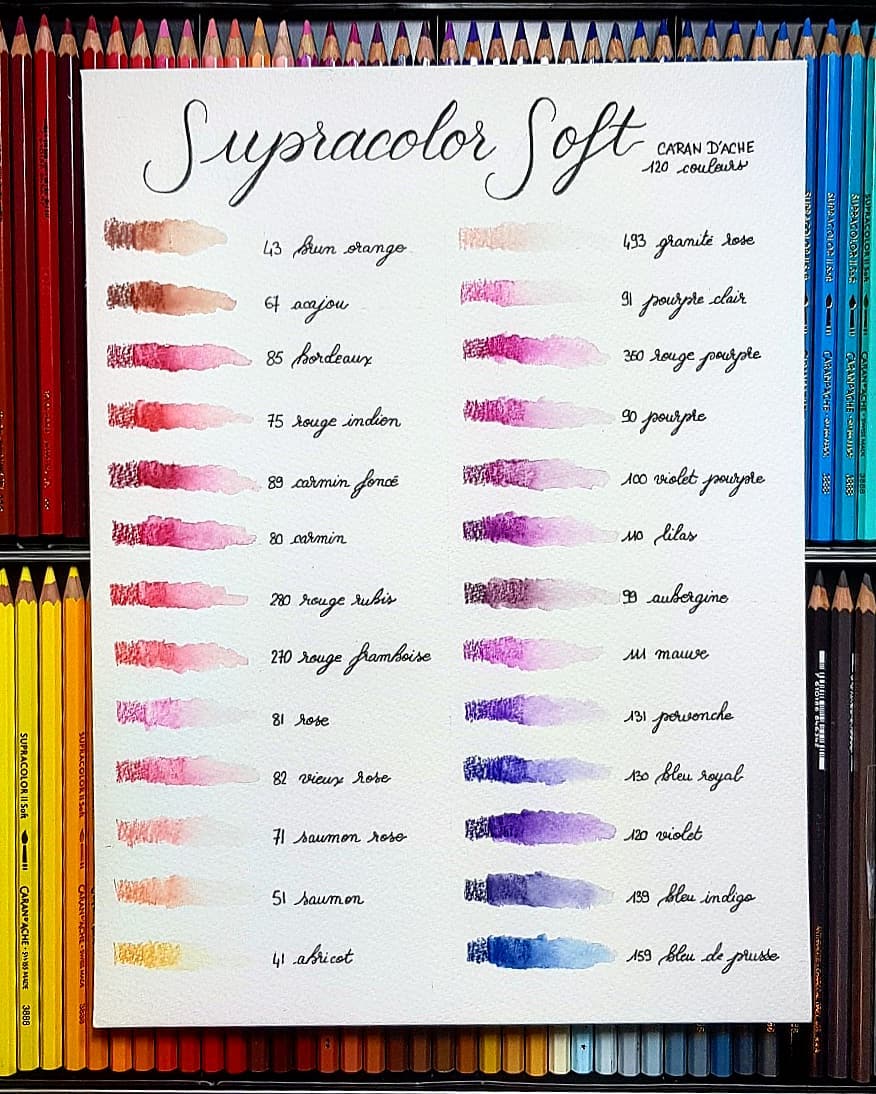 Supracolor Soft
CARAN D'ACHE
120 couleurs
43 brun orange
67 acajou
85 bordeaux
75 rouge indien
89 carmin foncé
80 carmin
280 rouge rubis
270 rouge framboise
81 rose
82 vieux rose
71 saumon rose
51 saumon
41 abricot
493 granité rose
91 pourpre clair
350 rouge pourpre
90 pourpre
100 violet pourpre
110 lilas
99 aubergine
111 mauve
131 pervenche
130 bleu royal
120 violet
139 bleu indigo
159 bleu de prusse
SUPRACOLOR II Soft
CARAN D'ACHE · SWISS MADE
3888